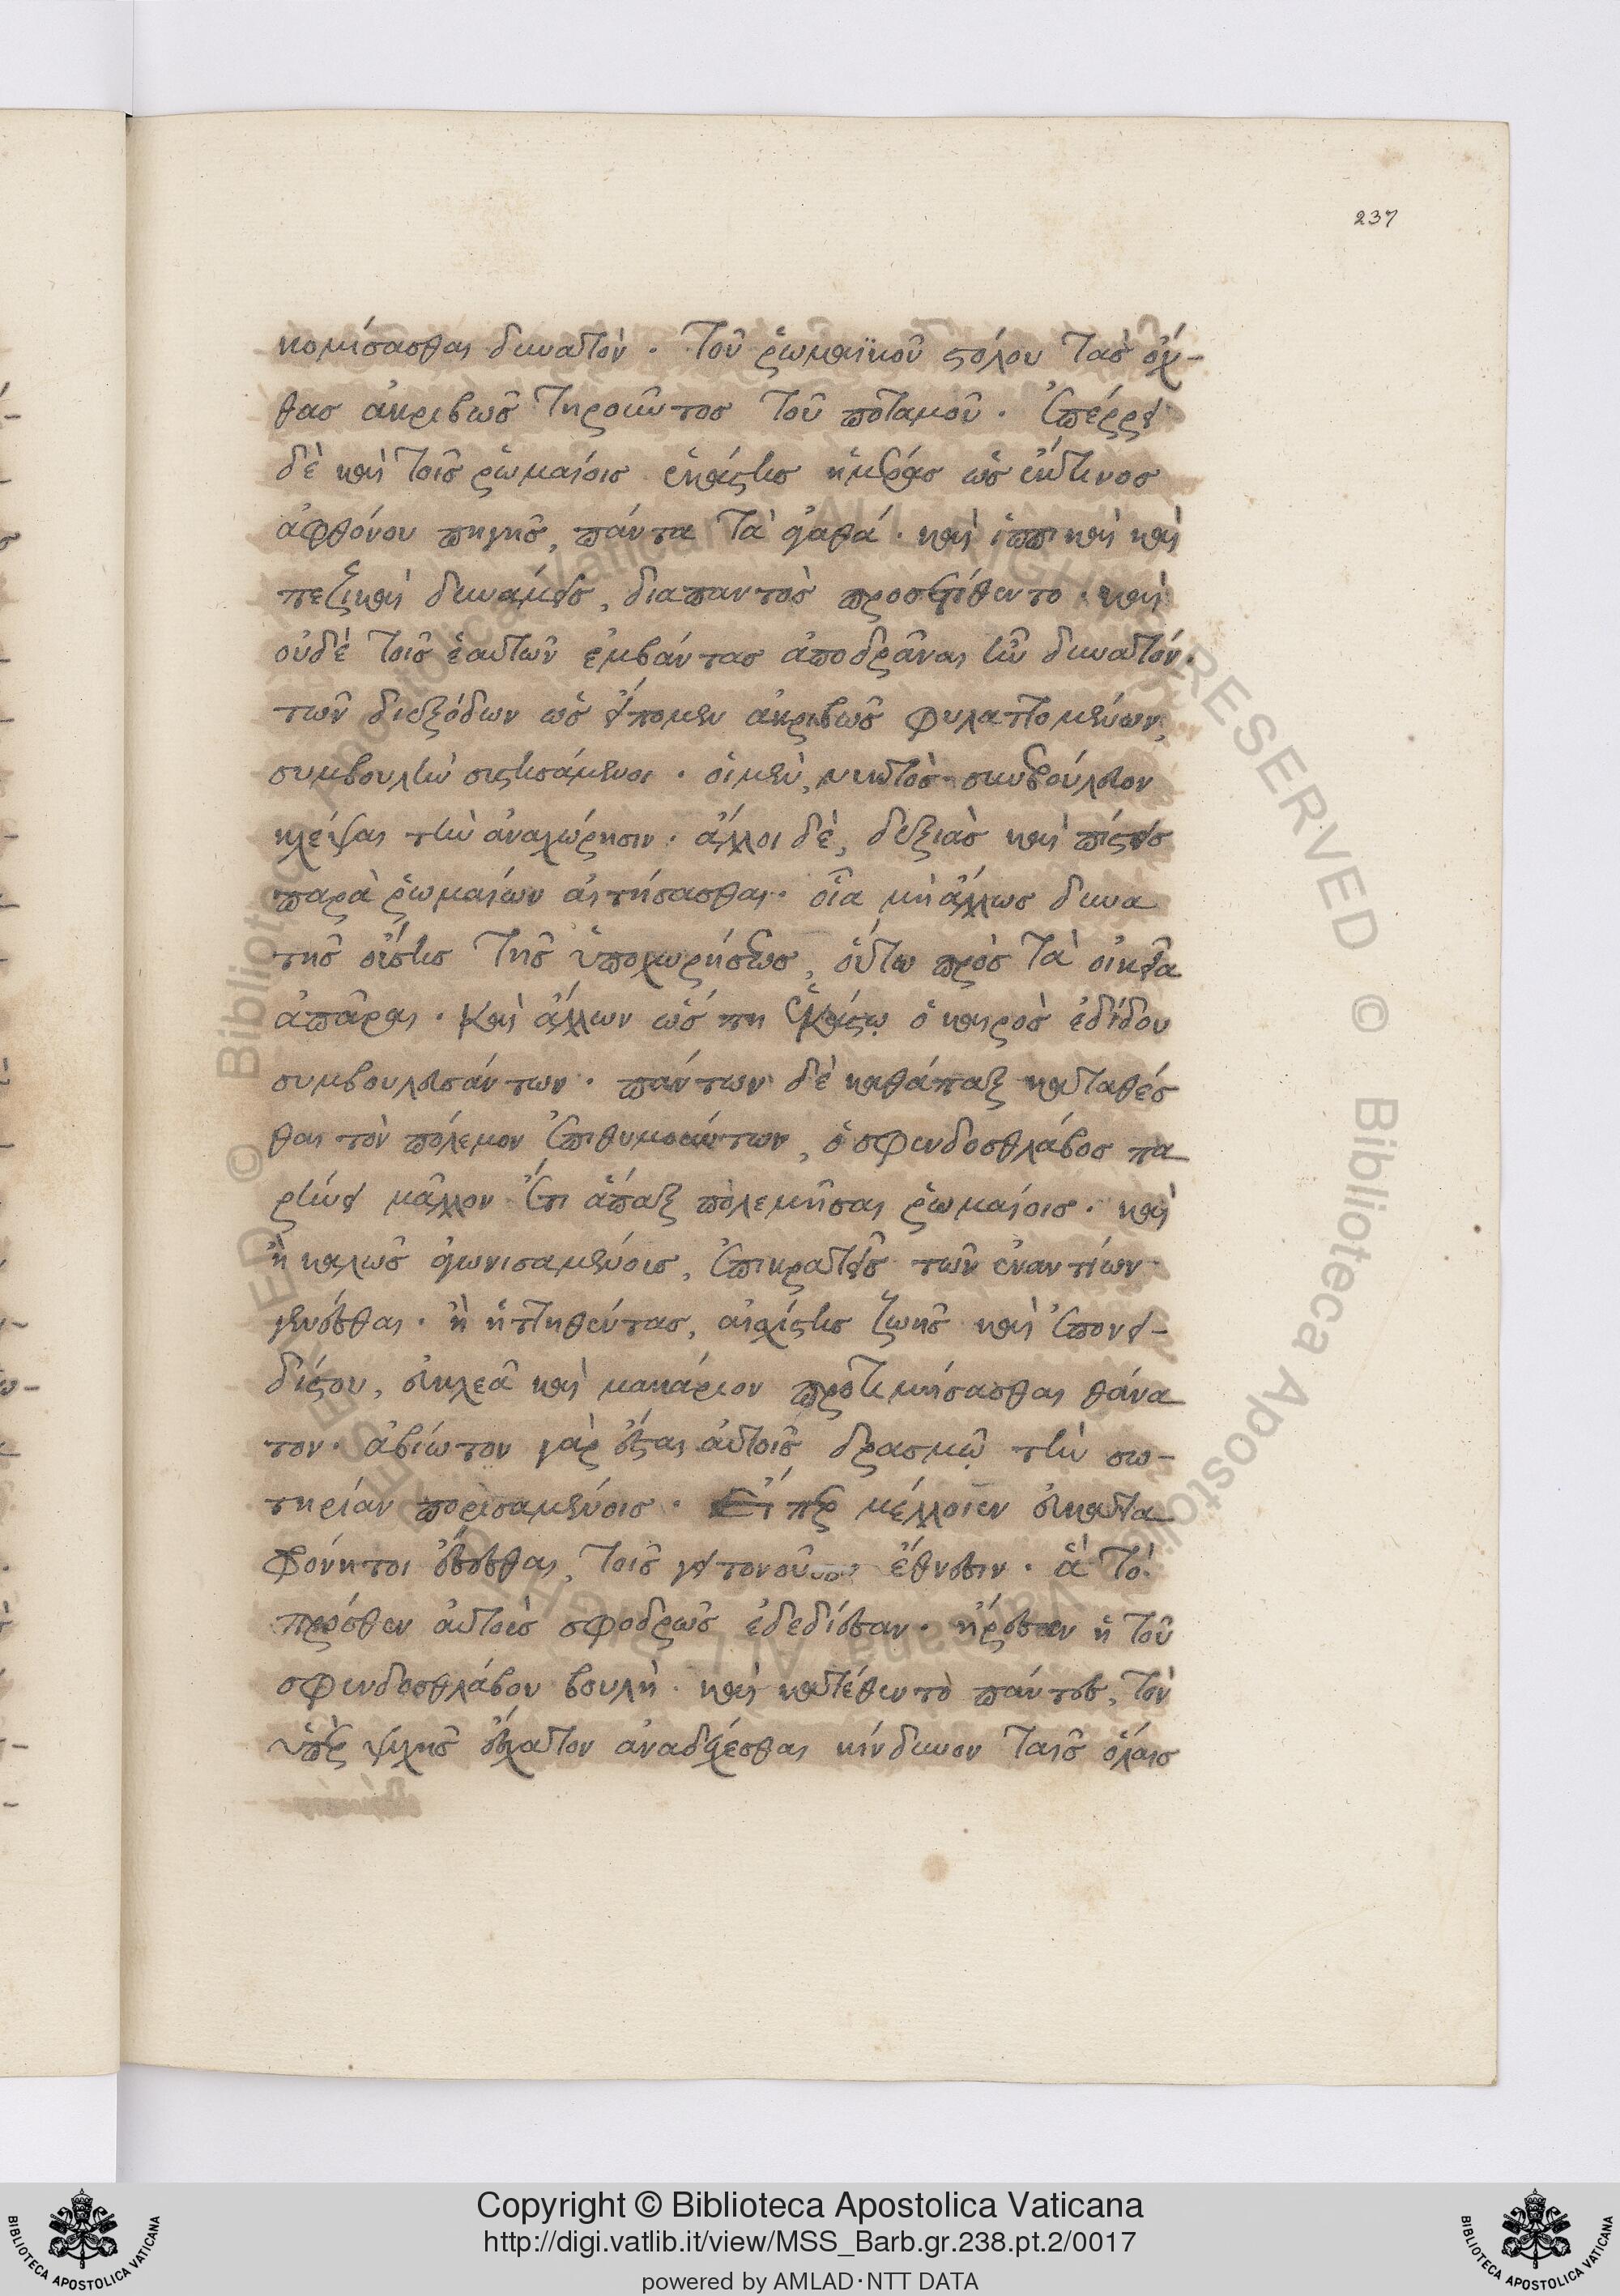 237
κομίσασθαι δυνατὸν · τοῦ ῥωμαϊκοῦ στόλου τὰς ὄχ-
θας ἀκριβῶς τηροῦντος τοῦ ποταμοῦ · ἐπέρρει
δὲ καὶ τοῖς ῥωμαίοις ἑκάστης ἡμέρας ὡς ἔκ τινος
ἀφθόνου πηγῆς, πάντα τὰ ἀγαθά · καὶ ἱππικαὶ καὶ
πεζικαὶ δυνάμεις, διαπαντὸς προσετίθεντο · καὶ
οὐδὲ τοῖς ἑαυτῶν ἐμβάντας ἀποδρᾶναι ἦν δυνατόν ·
τῶν διεξόδων ὡς εἴπομεν ἀκριβῶς φυλαττομένων,
συμβουλὴν συστησάμενοι · οἱ μὲν, νυκτὸς συνεβούλευον
κλέψαι τὴν ἀναχώρησιν · ἄλλοι δὲ, δεξιὰς καὶ πίστεις
παρὰ ῥωμαίων αἰτήσασθαι · οἷα μὴ ἄλλως δυνα
τῆς οὔσης τῆς ὑποχωρήσεως, οὕτω πρὸς τὰ οἰκεῖα
ἀπᾶραι · καὶ ἄλλων ὥς πη ἑκάστῳ ὁ καιρὸς ἐδίδου
συμβουλευσάντων · πάντων δὲ καθάπαξ καταθέσ
θαι τὸν πόλεμον ἐπιθυμούντων, ὁ σφενδοσθλάβος πα
ρῄνει μᾶλλον ἔτι ἅπαξ πολεμῆσαι ῥωμαίοις · καὶ
ἢ καλῶς ἀγωνισαμένοις, ἐπικρατεῖς τῶν ἐναντίων
γενέσθαι · ἢ ἡττηθέντας, αἰσχίστης ζωῆς καὶ ἐπονει-
δίστου, εὐκλεᾶ καὶ μακάριον προτιμήσασθαι θάνα
τον · ἀβίωτον γὰρ ἔσται αὐτοῖς δρασμῷ τὴν σω-
τηρίαν πορισαμένοις · εἴπερ μέλλοιεν εὐκατα
φρόνητοι ἔσεσθαι, τοῖς γειτονοῦσιν ἔθνεσιν · ἃ τὸ
πρόσθεν αὐτοὺς σφοδρῶς ἐδεδίεσαν · ἤρεσεν ἡ τοῦ
σφενδοσθλάβου βουλὴ · καὶ κατέθεντο πάντες, τὸν
ὑπὲρ ψυχῆς ἔσχατον ἀναδέχεσθαι κίνδυνον ταῖς ὅλαις
Copyright © Biblioteca Apostolica Vaticana
http://digi.vatlib.it/view/MSS_Barb.gr.238.pt.2/0017
powered by AMLAD·NTT DATA